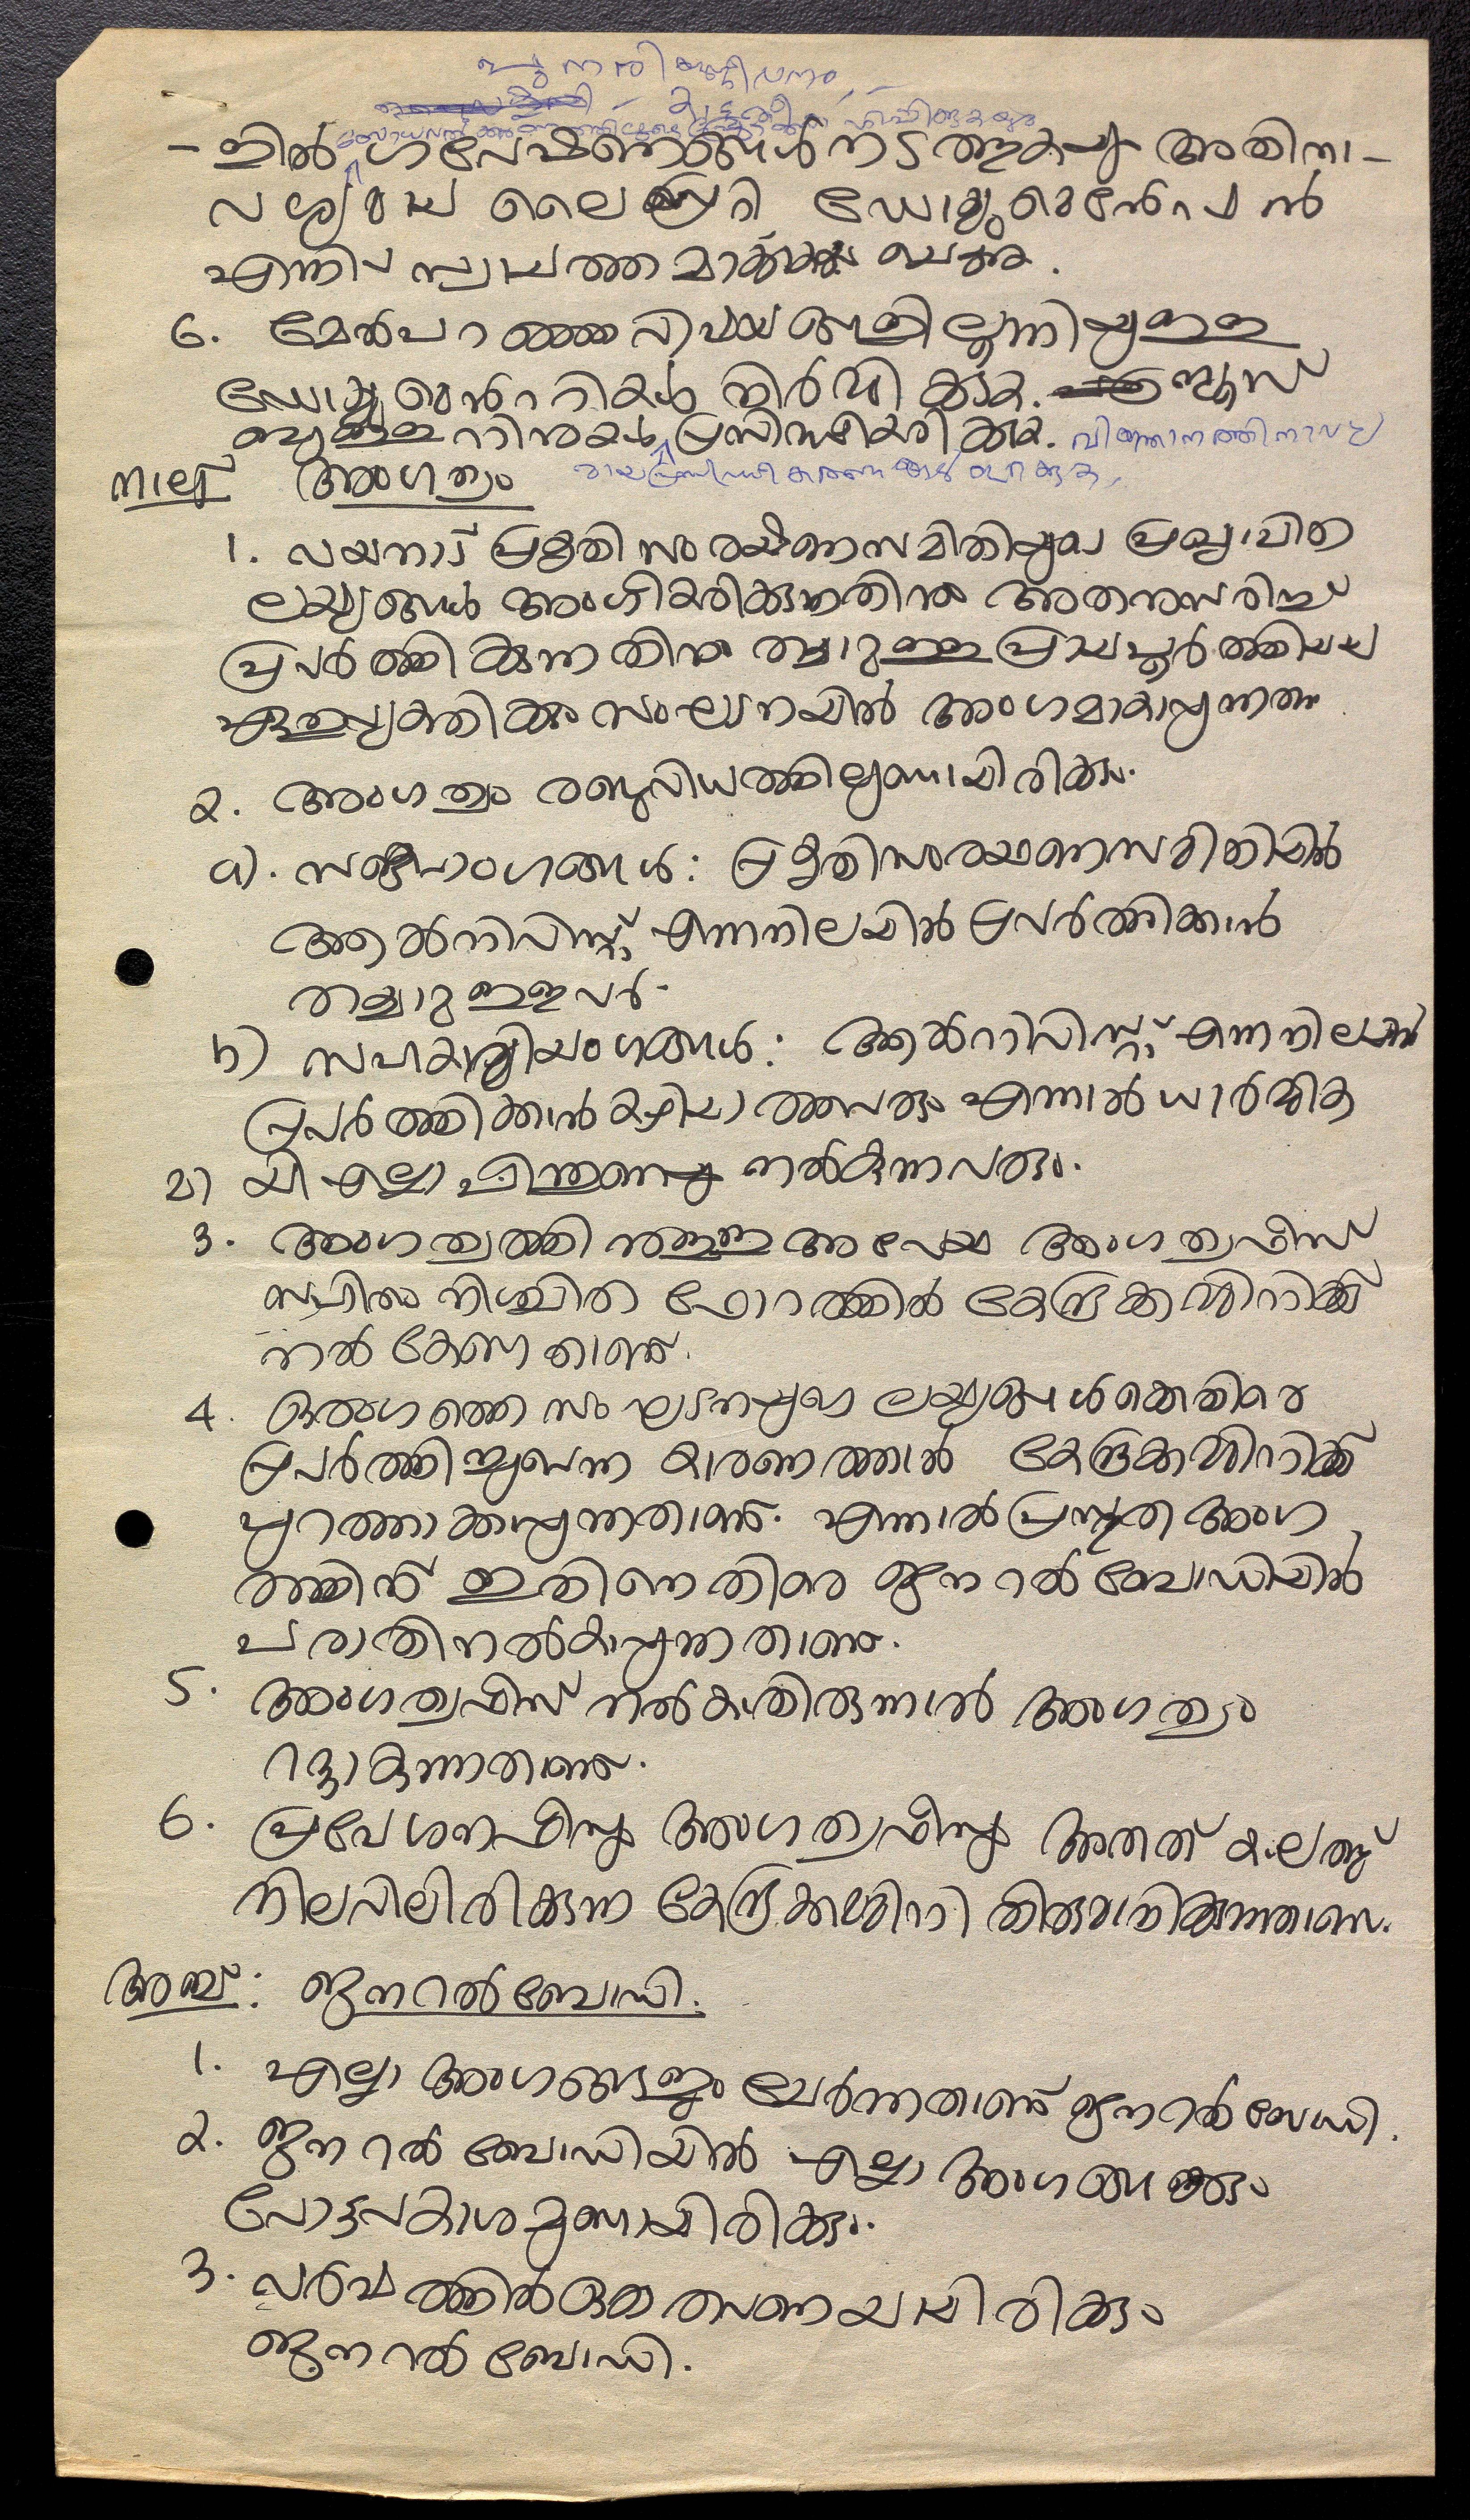 – ളിൽ ഗവേഷണങ്ങൾ നടത്തുകയും അതിനാ–
വശ്യമായ ലൈബ്രറി ഡോക്യുമെൻേറഷൻ
എന്നിവ സ്വായത്തമാക്കുകയും ചെയ്യുക.
6. മേൽപറഞ്ഞ വിഷയങ്ങളിലൂന്നിയുള്ള
ഡോക്യുമെൻററികൾ നിർമ്മിക്കുക. ന്യൂസ്
ബുള്ളറ്റിനുകൾ പ്രസിദ്ധീകരിക്കുക. വിജ്ഞാനത്തിനാവശ്യ
മായ പ്രസിദ്ധീകരണങ്ങൾ ഇറക്കുക,
നാല് അംഗത്വം
1. വയനാട് പ്രകൃതി സംരക്ഷണസമിതിയുടെ പ്രഖ്യാപിത
ലക്ഷ്യങ്ങൾ അംഗീകരിക്കുന്നതിനും അതനുസരിച്ച്
പ്രവർത്തിക്കുന്നതിനും തയ്യാറുള്ള പ്രായപൂർത്തിയായ
ഏതുവ്യക്തിക്കും സംഘടനയിൽ അംഗമാകാവുന്നതാണ്
2. അംഗത്വം രണ്ടുവിധത്തിലുണ്ടായിരിക്കും.
a). സജീവാംഗങ്ങൾ: പ്രകൃതിസംരക്ഷണസമിതിയിൽ
ആക്ടിവിസ്റ്റ് എന്നനിലയിൽ പ്രവർത്തിക്കാൻ
തയ്യാറുള്ളവർ.
b) സഹകാരിയംഗങ്ങൾ: ആക്ടിവിസ്റ്റ് എന്നനിലയിൽ
പ്രവർത്തിക്കാൻ കഴിയാത്തവരും എന്നാൽ ധാർമ്മിക
മായി എല്ലാ പിന്തുണയും നൽകുന്നവരും.
3. അംഗത്വത്തിനുള്ള അപേക്ഷ അംഗത്വഫീസ്
സഹിതം നിശ്ചിത ഫോറത്തിൽ കേന്ദ്രകമ്മിറ്റിക്ക്
നൽകേണ്ടതാണ്.
4. ഒരംഗത്തെ സംഘടനയുടെ ലക്ഷ്യങ്ങൾക്കെതിരെ
പ്രവർത്തിച്ചുവെന്ന കാരണത്താൽ കേന്ദ്രകമ്മിറ്റിക്ക്
പുറത്താക്കാവുന്നതാണ്. എന്നാൽ പ്രസ്തുത അംഗ
ത്തിന് ഇതിനെതിരെ ജനറൽ ബോഡിയിൽ
പരാതിനൽകാവുന്നതാണ്.
5. അംഗത്വഫീസ് നൽകാതിരുന്നാൽ അംഗത്വം
റദ്ദാകുന്നതാണ്.
6. പ്രവേശനഫീസും അംഗത്വഫീസും അതത് കാലത്ത്
നിലവിലിരിക്കുന്ന കേന്ദ്രകമ്മിറ്റി തീരുമാനിക്കുന്നതാണ്.
അഞ്ച്: ജനറൽബോഡി.
1. എല്ലാ അംഗങ്ങളും ചേർന്നതാണ് ജനറൽ ബോഡി.
2. ജനറൽ ബോഡിയിൽ എല്ലാ അംഗങ്ങൾക്കും
വോട്ടവകാശമുണ്ടായിരിക്കും.
3. വർഷത്തിൽ ഒരു തവണയായിരിക്കും
ജനറൽ ബോഡി.